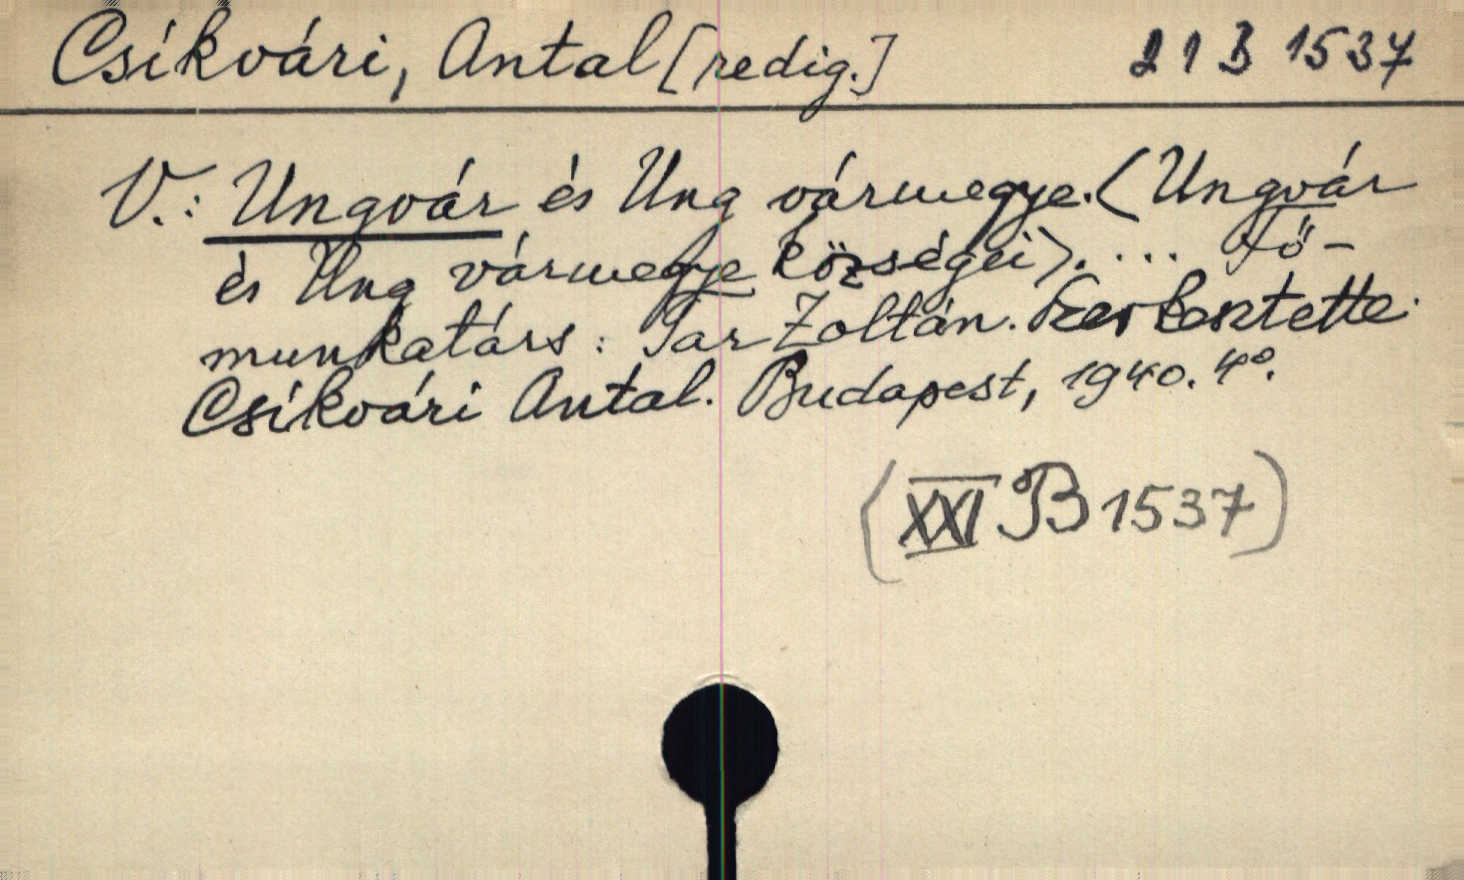 Csíkvári, Antal [redig.] 21 B 1537
V.: Ungvár és Ung vármegye. (Ungvár
és Ung vármegye községei). ... Fő-
munkatárs: Tar Zoltán. Szerkesztette
Csíkvári Antal. Budapest, 1940. 4º.
(XXI B 1537)